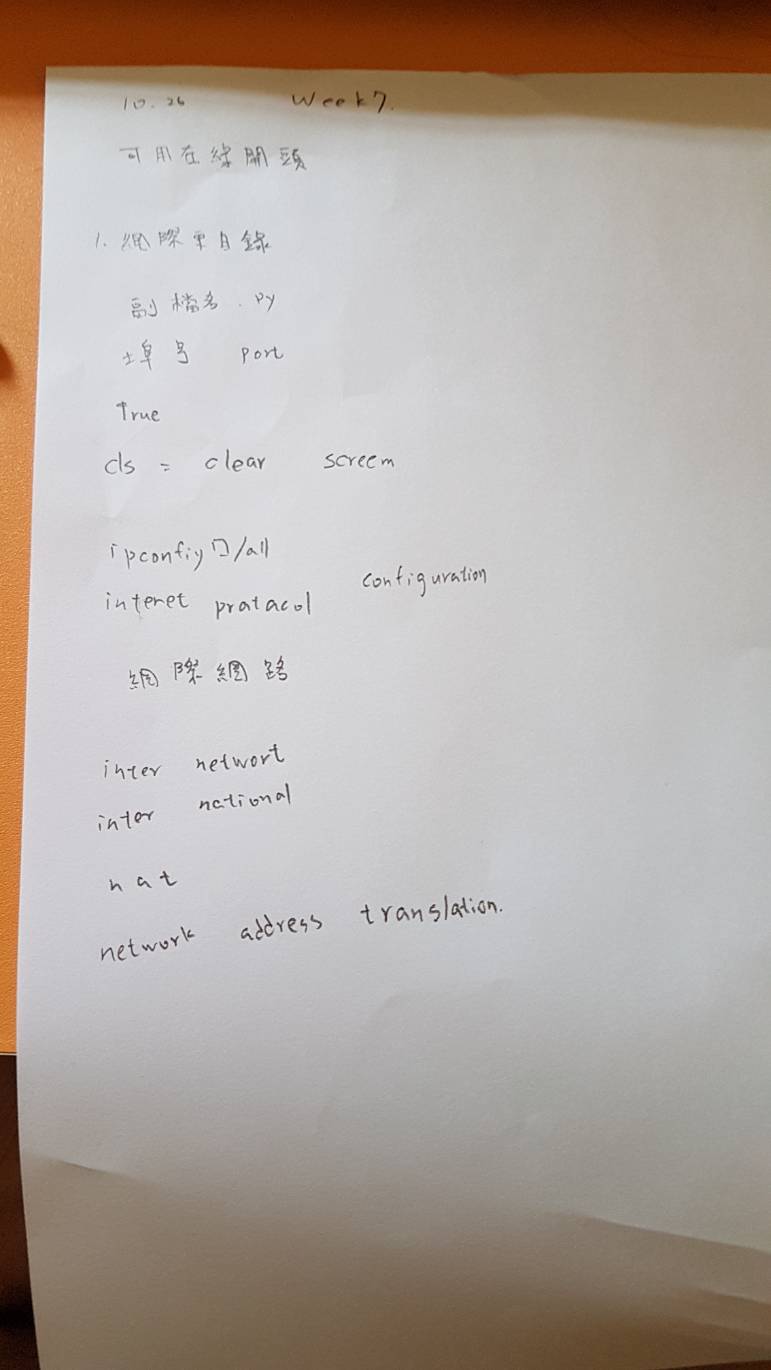 10.26 Week7.
可用在線開頭
1. 網際 目錄
副檔名 .py
埠号 port
True
cls = clear screem
ipconfiy ㄇ/all
interet pratacol configuration
網際網路
inter networt
inter national
nat
network address translation.